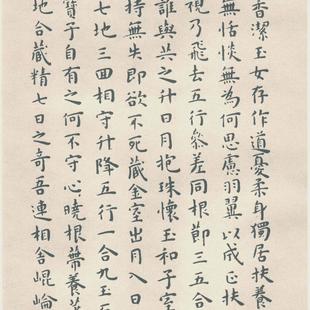 香潔玉女存作道憂柔身獨居扶養
無恬惔無為何思慮羽翼以成正扶
視乃飛去五行參差同根節三五合
誰與共之升日月抱珠懷玉和子室
持無失即欲不死藏金室出月入日
七地三迴相守升降五行一合九玉石
寶子自有之何不守心曉根蔕養
地合藏精七日之奇吾連相合崐崘